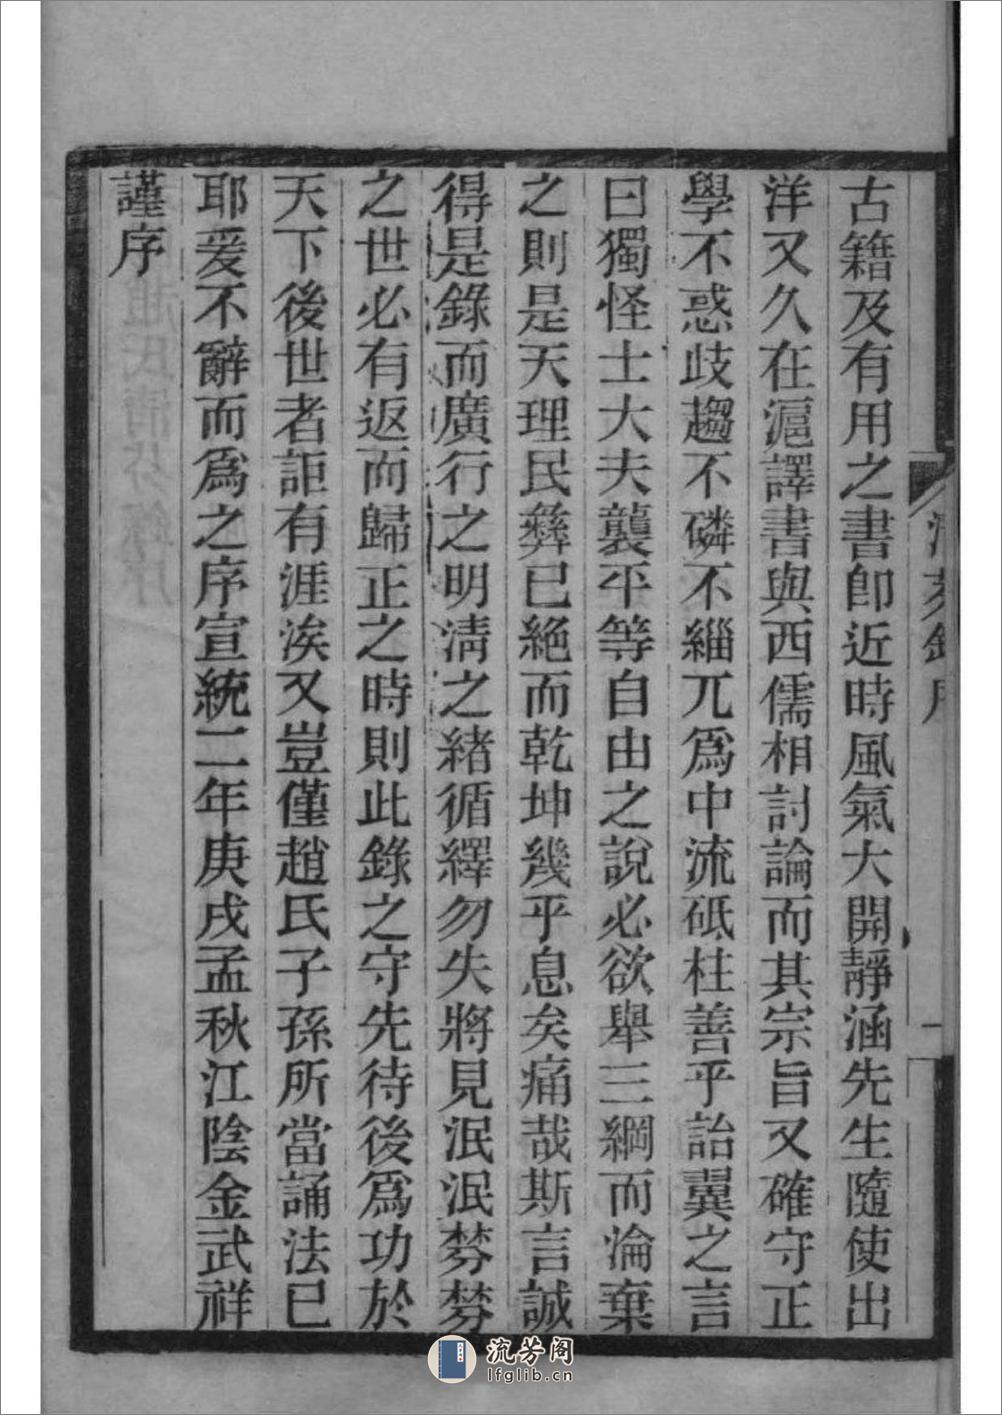 古籍及有用之書卽近時風氣大開靜涵先生隨使出
洋又久在滬譯書與西儒相討論而其宗旨又確守正
學不惑歧趨不磷不緇兀爲中流砥柱善乎詒翼之言
曰獨怪士大夫襲平等自由之說必欲舉三綱而淪棄
之則是天理民彝已絕而乾坤幾乎息矣痛哉斯言誠
得是錄而廣行之明淸之緒循繹勿失將見泯泯棼棼
之世必有返而歸正之時則此錄之守先待後爲功於
天下後世者詎有涯涘又豈僅趙氏子孫所當誦法已
耶爰不辭而爲之序宣統二年庚戌孟秋江陰金武祥
謹序
一
流芳阁
lfglib.cn